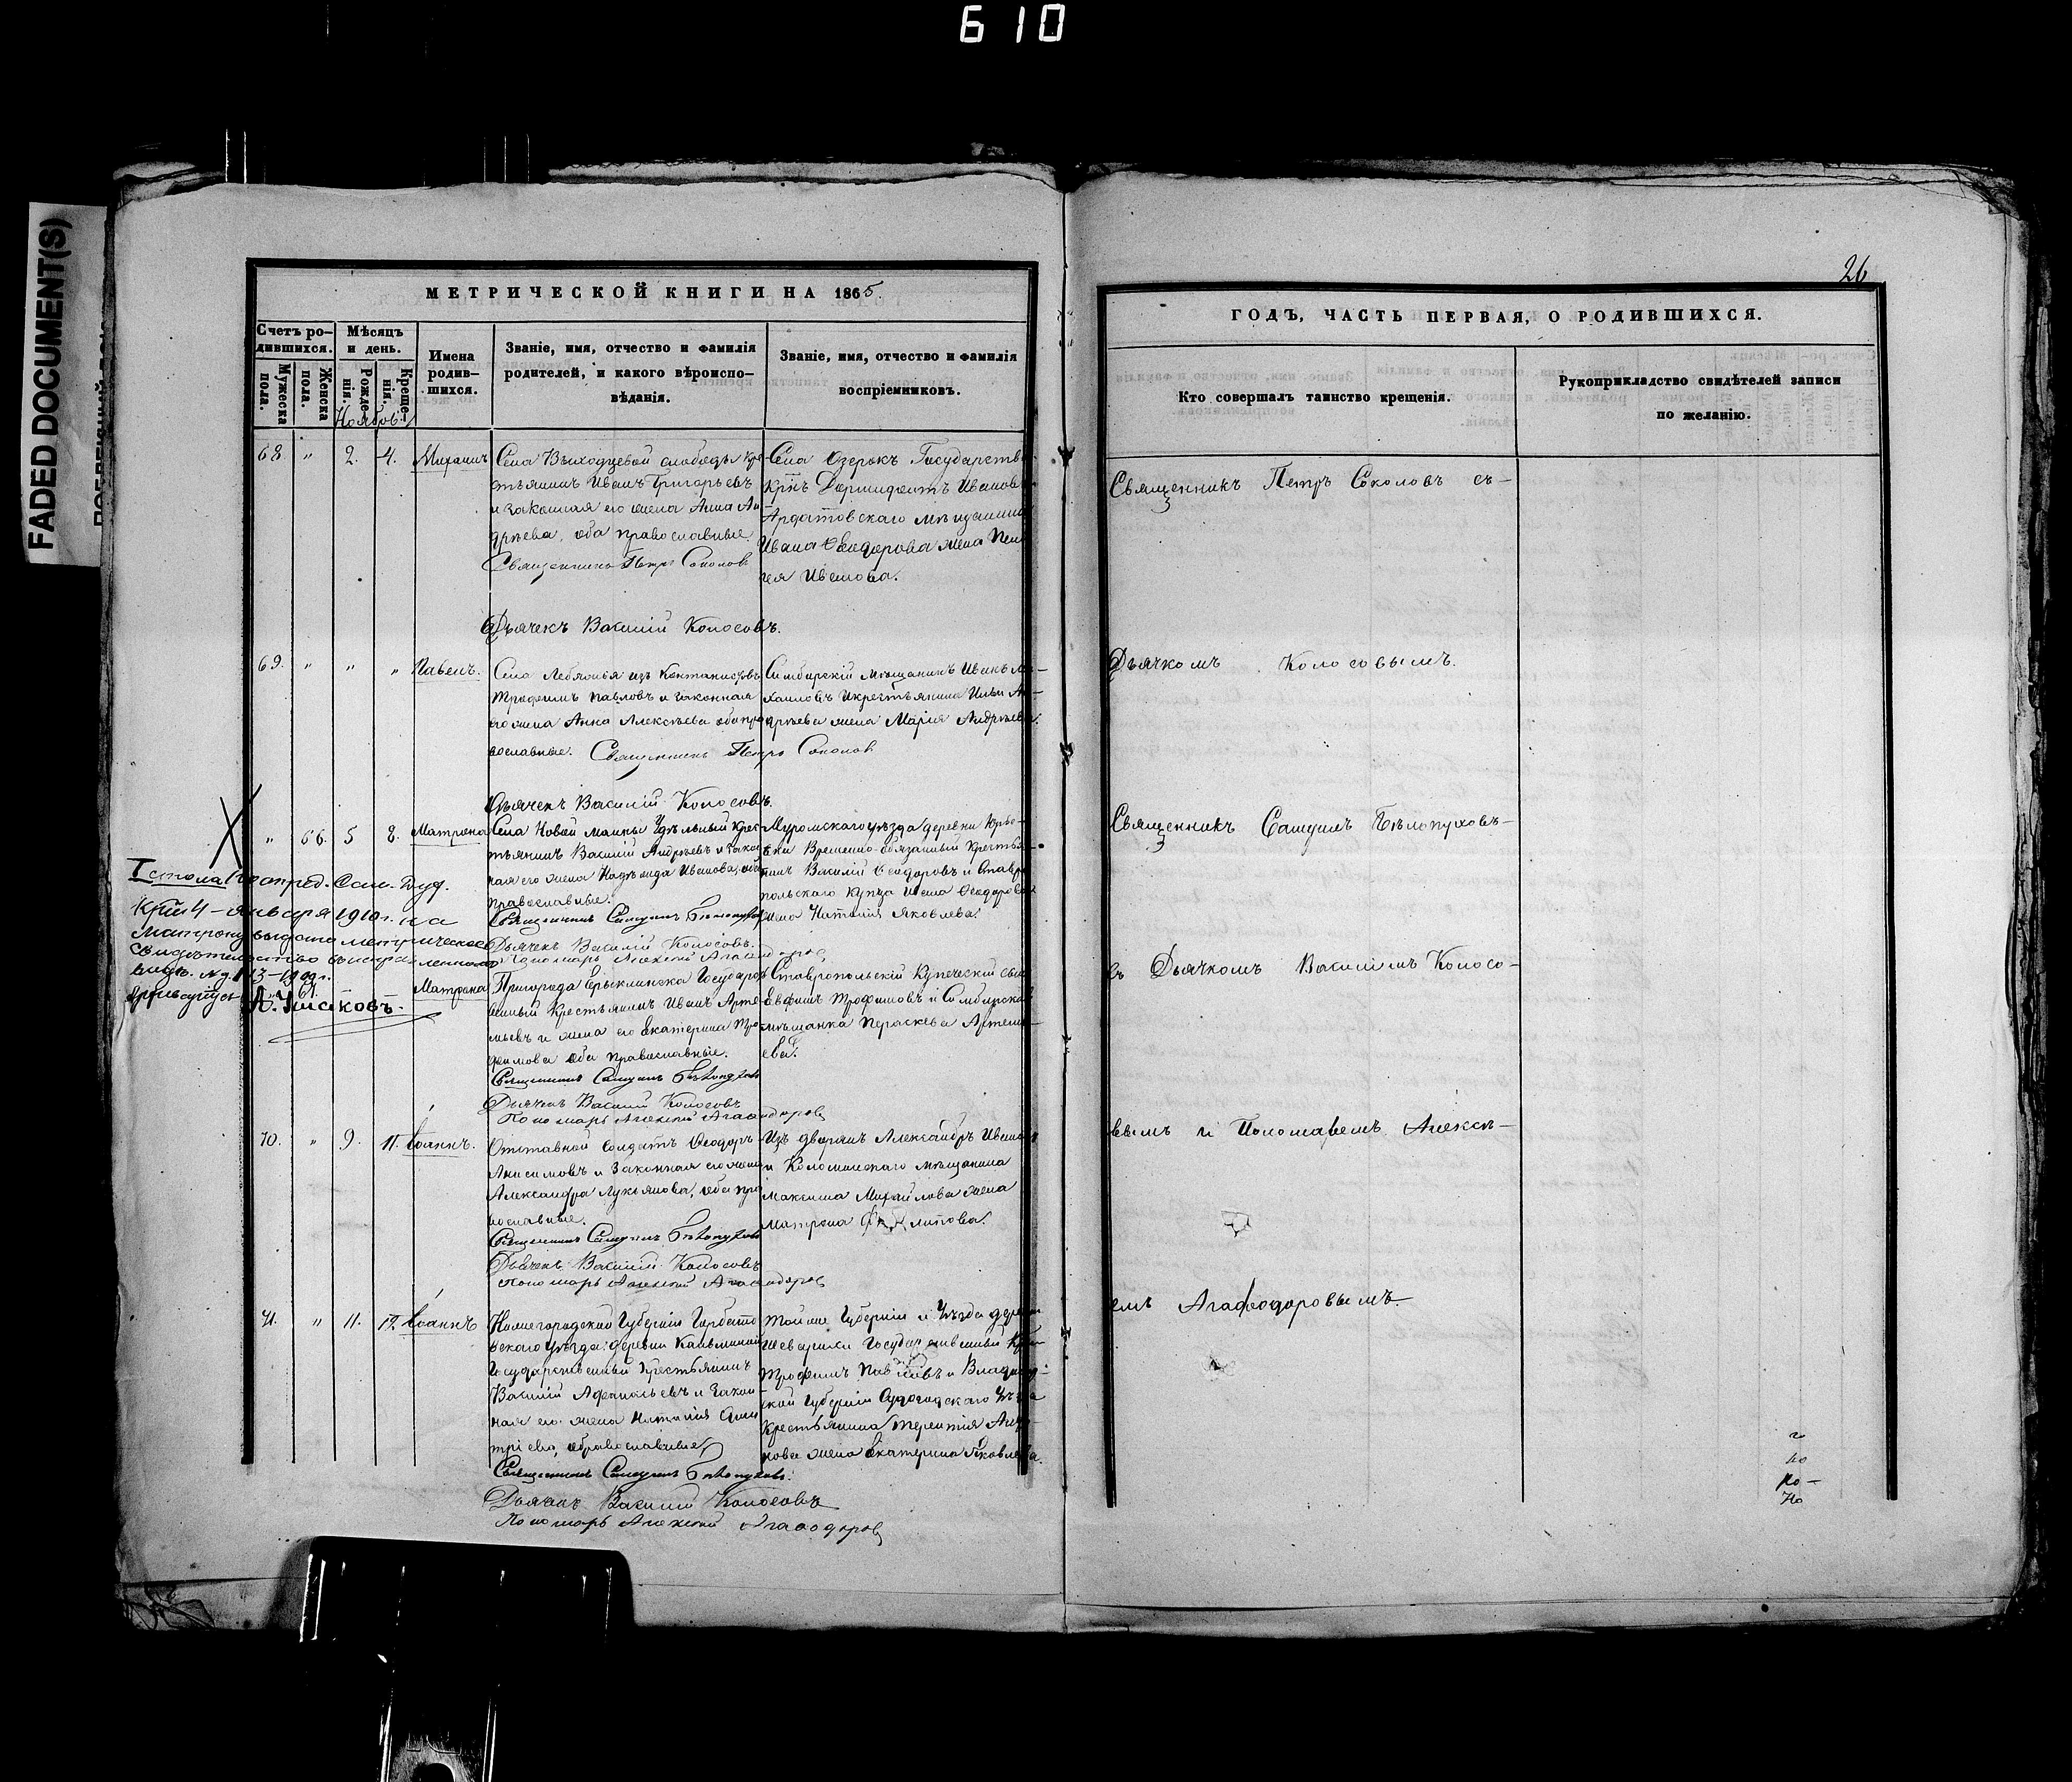 610
FADED DOCUMENT(S)
МЕТРИЧЕСКОЙ КНИГИ НА 1865.
Счетъ ро-
дившихся.
Мѣсяцъ
и день.
Мужеска
пола.
Женска
пола.
Рожде-
нія.
Креще-
нія.
Ноябр.
Имена
родив-
шихся.
Званіе, имя, отчество и фамилія
родителей, и какого вѣроиспо-
вѣданія.
Званіе, имя, отчество и фамилія
воспріемниковъ.
68 " 2. 4. Михаилъ
Села Выходцевой слободы Кре-
стьянинъ Иванъ Григорьевъ
и законная его жена Анна Ан-
дреева, оба православные.
Священникъ Петръ Соколовъ
Дьячекъ Василій Колосовъ.
Села Озерокъ Государств
Кр̃нъ Дормидонтъ Иванов
Ардатовскаго мѣщанина
Ивана Ѳеодорова жена Пела
гея Иванова.
69. " " " Павелъ.
Села Лебяжья изъ Кантонистовъ
Трофимъ Павловъ и законная
его жена Анна Алексѣева оба пра
вославные. Священникъ Петръ Соколовъ
Дьячекъ Василій Колосовъ.
Симбирскій мѣщанинъ Иванъ Ми-
хаиловъ и крестьянина Ильи Ан-
дрѣева жена Марія Андрѣева.
" 66. 5 8. Матрона
Села Новой Майны Удѣльный Крес-
тьянинъ Василій Андрѣевъ и закон
ная его жена Надѣжда Иванова, оба
православные.
Священникъ Самуилъ Бѣлопуховъ
Дьячекъ Василій Колосовъ.
Пономарь Алексѣй Агаѳодоровъ
Муромскаго уѣзда деревни Юрье-
Временно-обязанный Крестья-
нинъ Василій Ѳеодоровъ и Ставро
польскаго Купца Ивана Ѳеодорова
жена Наталія Яковлева.
I стола По опред. Сам. Дух.
4 - января 1910 г. на
Матрону выдано метрическое
свидѣтельство
1909 г.
А. Ушаковъ.
" 67. – – Матрона
Пригорода Ерыклинска Государст
венный Крестьянинъ Иванъ Арте-
мьевъ и жена его Екатерина Тро
фимова оба православные.
Священникъ Самуилъ Бѣлопуховъ
Дьячекъ Василій Колосовъ
Пономарь Алексѣй Агаѳодоровъ
Ставропольскій Купеческій сынъ
Евфимъ Трофимовъ и Симбирская
мѣщанка Параскева Артемь-
ева.
70. " 9. 11. Іоаннъ.
Отставной солдатъ Ѳеодоръ
Анисимовъ и Законная его жена
Александра Лукьянова, оба пра
вославные.
Священникъ Самуилъ Бѣлопуховъ
Дьячекъ Василій Колосовъ
Пономарь Алексѣй Агаѳодоровъ
Изъ дворянъ Александръ Иванов
и Коломенскаго мѣщанина
Максима Михайлова жена
Матрона Филипова.
71. " 11. 12. Іоаннъ
Нижегородской Губерніи Горбато
вскаго уѣзда деревни
Государственный Крестьянинъ
Василій Афанасьевъ и Закон-
ная его жена Наталія Дми
тріева, оба православные
Священникъ Самуилъ Бѣлопуховъ.
Дьячекъ Василій Колосовъ
Пономарь Алексѣй Агаѳодоровъ
Той же Губерніи и Уѣзда деревни
Государственный
Трофимъ Павловъ и Владимір-
ской Губерніи Судогодскаго Уѣзда
Крестьянина Терентія
жена Екатерина Яковлева.
26
ГОДЪ, ЧАСТЬ ПЕРВАЯ, О РОДИВШИХСЯ.
Кто совершалъ таинство крещенія.
Рукоприкладство свидѣтелей записи
по желанію.
Священникъ Петръ Соколовъ съ-
Дьячкомъ Колосовымъ.
Священникъ Самуилъ Бѣлопуховъ-
съ Дьячкомъ Василіемъ Колосо-
вымъ и Пономаремъ Алексѣ-
емъ Агафодоровымъ.